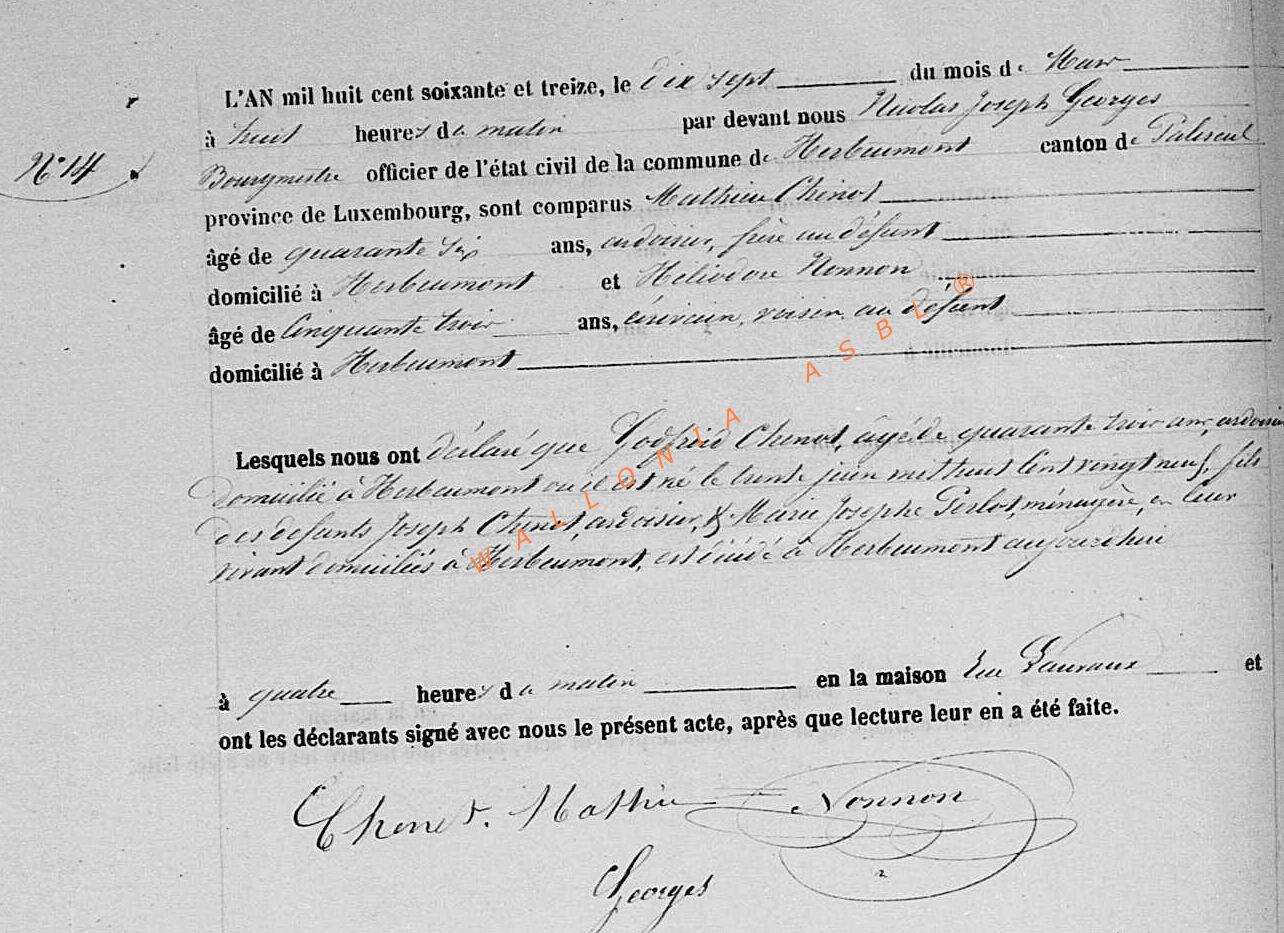 L'AN mil huit cent soixante et treize, le dix sept du mois de Mars
à huit heures du matin par devant nous Nicolas Joseph Georges
N° 14 Bourgmestre officier de l'état civil de la commune de Herbeumont canton de Paliseul
province de Luxembourg, sont comparus Mathieu Chenot
âgé de quarante six ans, ardoisier, frère au défunt
domicilié à Herbeumont et Héliodore Nonnon
âgé de Cinquante trois ans, écrivain, voisin au défunt
domicilié à Herbeumont
WALLONIA ASBL ®
Lesquels nous ont déclaré que Godfroid Chenot, âgé de quarante trois ans, ardoisier
domicilié à Herbeumont où il est né le trente juin mil huit Cent vingt neuf, fils
des défunts Joseph Chenot, ardoisier, & Marie Josephe Perlot, ménagère, en leur
vivant domiciliés à Herbeumont, est décédé à Herbeumont aujourdhui
à quatre heures du matin en la maison et
ont les déclarants signé avec nous le présent acte, après que lecture leur en a été faite.
Chenot. Mathieu Nonnon
Georges